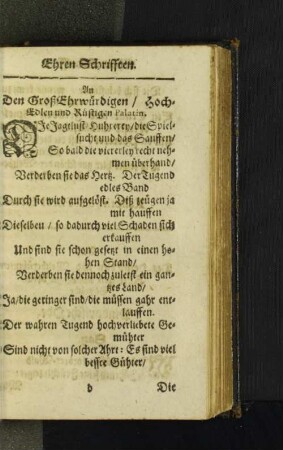 Ehren Schrifften.
An
Den GroßEhrwürdigen / Hoch-
Edlen und Rüstigen Palatin.
DJe Jagtlust / Huhrerey / die Spiel-
sucht und das Sauffen /
So bald die vier erley recht neh-
men überhand /
Verderben sie das Hertz. Der Tugend
edles Band
Durch sie wird aufgelöst. Diß zeugen ja
mit hauffen
Dieselben / so dadurch viel Schaden sich
erkauffen
Und sind sie schon gesetzt in einen ho-
hen Stand /
Verderben sie dennoch zuletst ein gan-
tzes Land /
Ja / die geringer sind / die müssen gahr ent-
lauffen.
Der wahren Tugend hochverliebete Ge-
mühter
Sind nicht von solcher Ahrt: Es sind viel
bessre Gühter /
b
Die